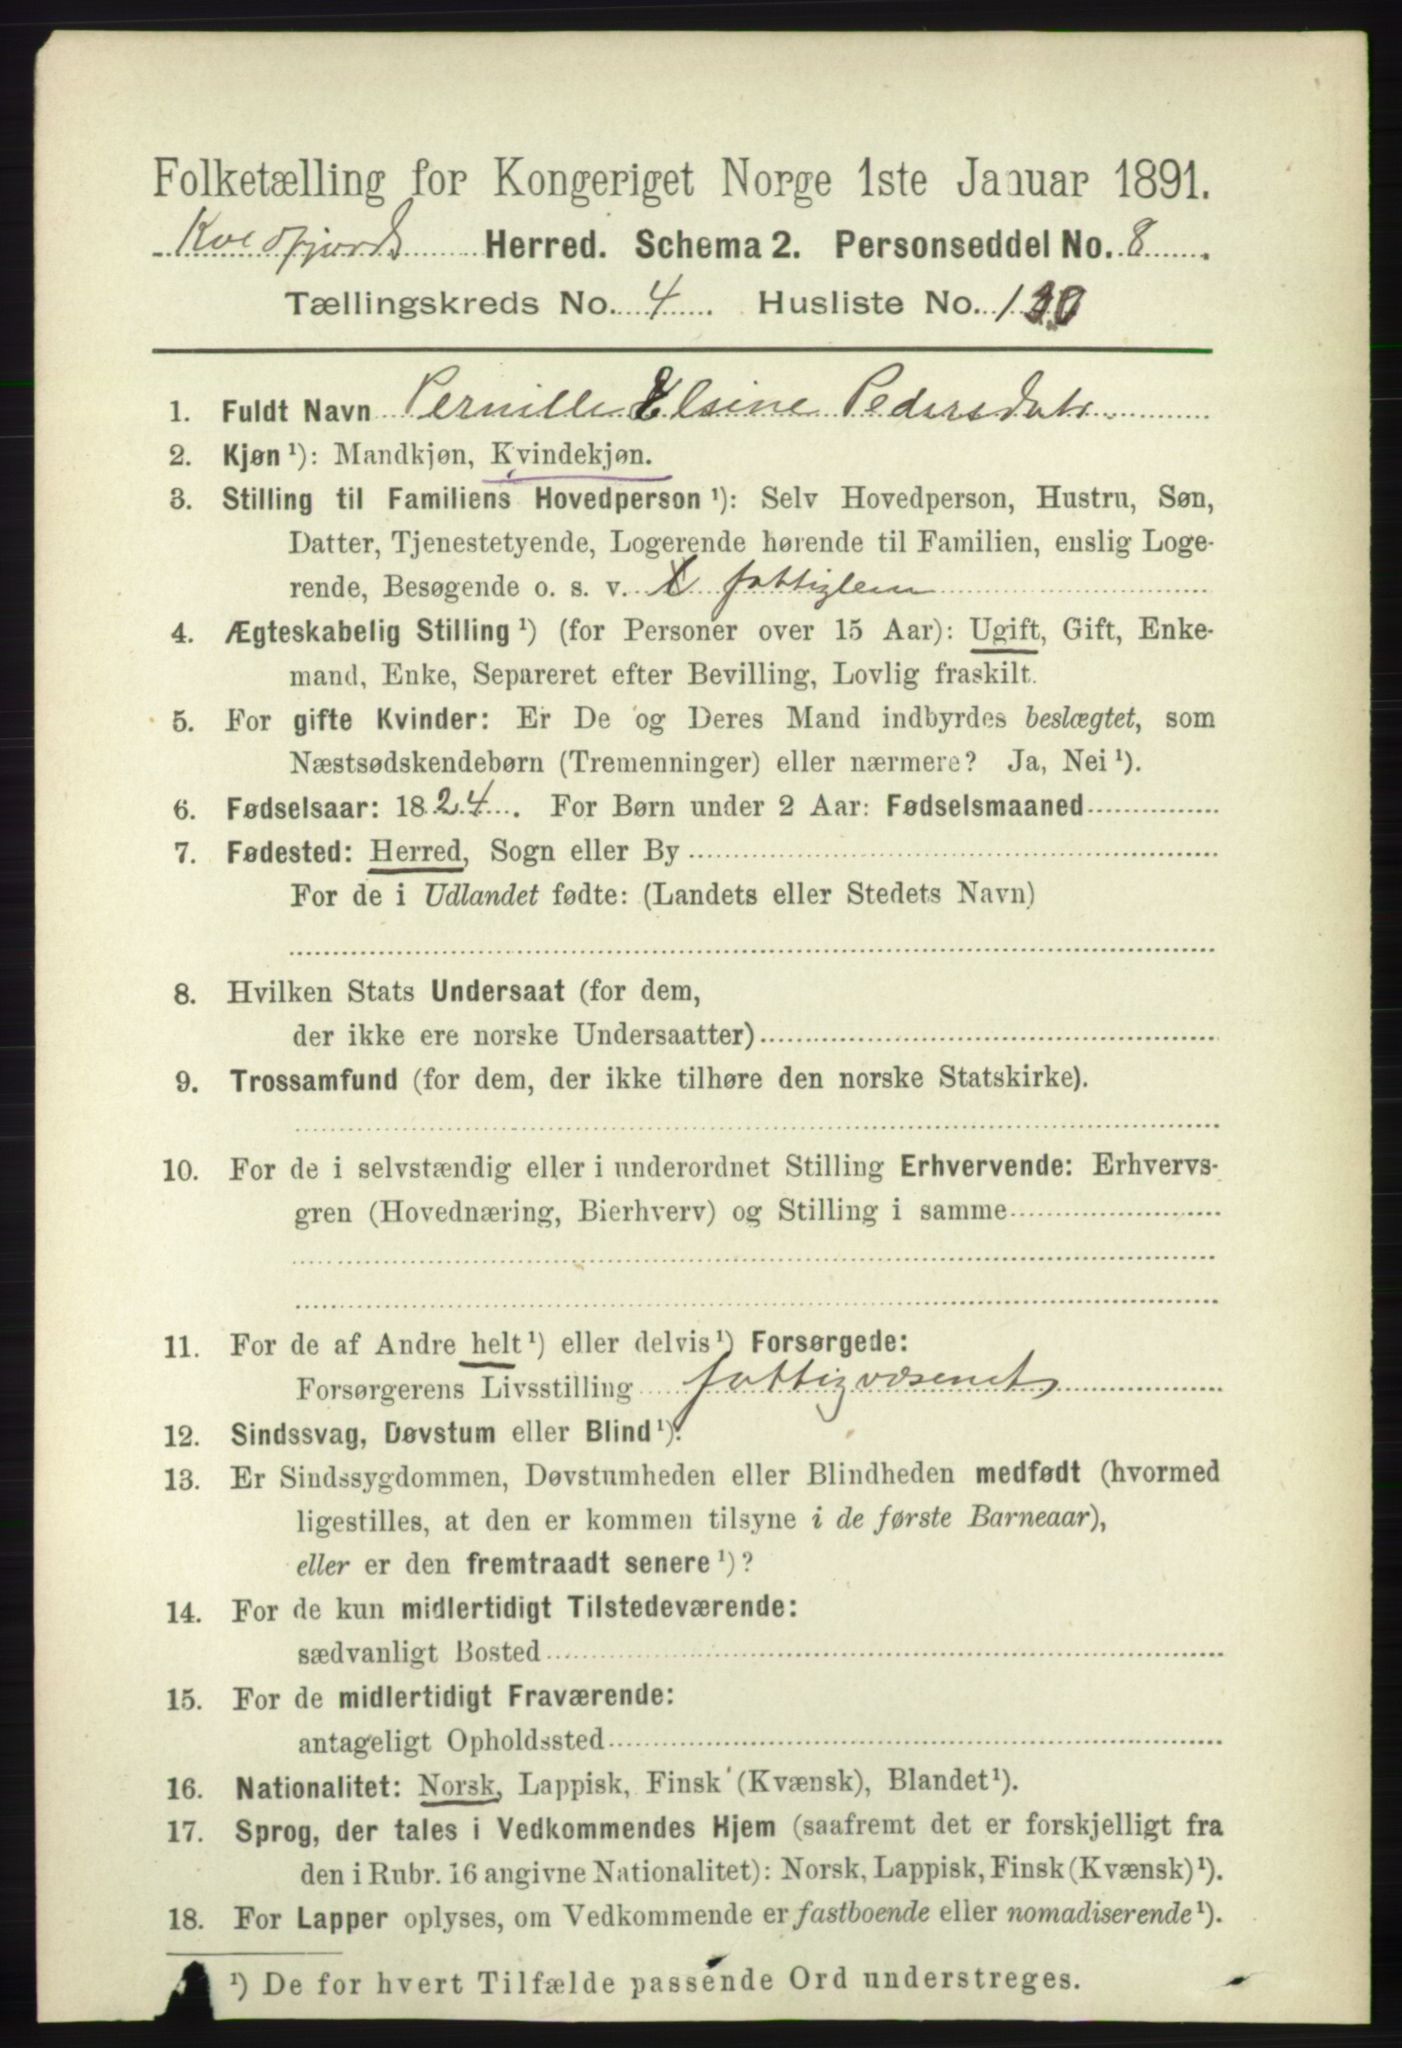 Folketælling for Kongeriget Norge 1ste Januar 1891.
Kvedfjord Herred. Schema 2. Personseddel No. 8.
Tællingskreds No. 4. Husliste No. 130
1. Fuldt Navn Pernille Elsine Pedersdatr
2. Kjøn ¹): Mandkjøn, Kvindekjøn.
3. Stilling til Familiens Hovedperson ¹): Selv Hovedperson, Hustru, Søn,
Datter, Tjenestetyende, Logerende hørende til Familien, enslig Loge-
rende, Besøgende o. s. v. fattiglem
4. Ægteskabelig Stilling ¹) (for Personer over 15 Aar): Ugift, Gift, Enke-
mand, Enke, Separeret efter Bevilling, Lovlig fraskilt.
5. For gifte Kvinder: Er De og Deres Mand indbyrdes beslægtet, som
Næstsødskendebørn (Tremenninger) eller nærmere? Ja, Nei ¹).
6. Fødselsaar: 1824. For Børn under 2 Aar: Fødselsmaaned
7. Fødested: Herred, Sogn eller By
For de i Udlandet fødte: (Landets eller Stedets Navn)
8. Hvilken Stats Undersaat (for dem,
der ikke ere norske Undersaatter)
9. Trossamfund (for dem, der ikke tilhøre den norske Statskirke).
10. For de i selvstændig eller i underordnet Stilling Erhvervende: Erhvervs-
gren (Hovednæring, Bierhverv) og Stilling i samme
11. For de af Andre helt ¹) eller delvis ¹) Forsørgede:
Forsørgerens Livsstilling fattigvæsenet
12. Sindssvag, Døvstum eller Blind ¹).
13. Er Sindssygdommen, Døvstumheden eller Blindheden medfødt (hvormed
ligestilles, at den er kommen tilsyne i de første Barneaar),
eller er den fremtraadt senere ¹)?
14. For de kun midlertidigt Tilstedeværende:
sædvanligt Bosted
15. For de midlertidigt Fraværende:
antageligt Opholdssted
16. Nationalitet: Norsk, Lappisk, Finsk (Kvænsk), Blandet ¹).
17. Sprog, der tales i Vedkommendes Hjem (saafremt det er forskjelligt fra
den i Rubr. 16 angivne Nationalitet): Norsk, Lappisk, Finsk (Kvænsk) ¹).
18. For Lapper oplyses, om Vedkommende er fastboende eller nomadiserende ¹).
¹) De for hvert Tilfælde passende Ord understreges.